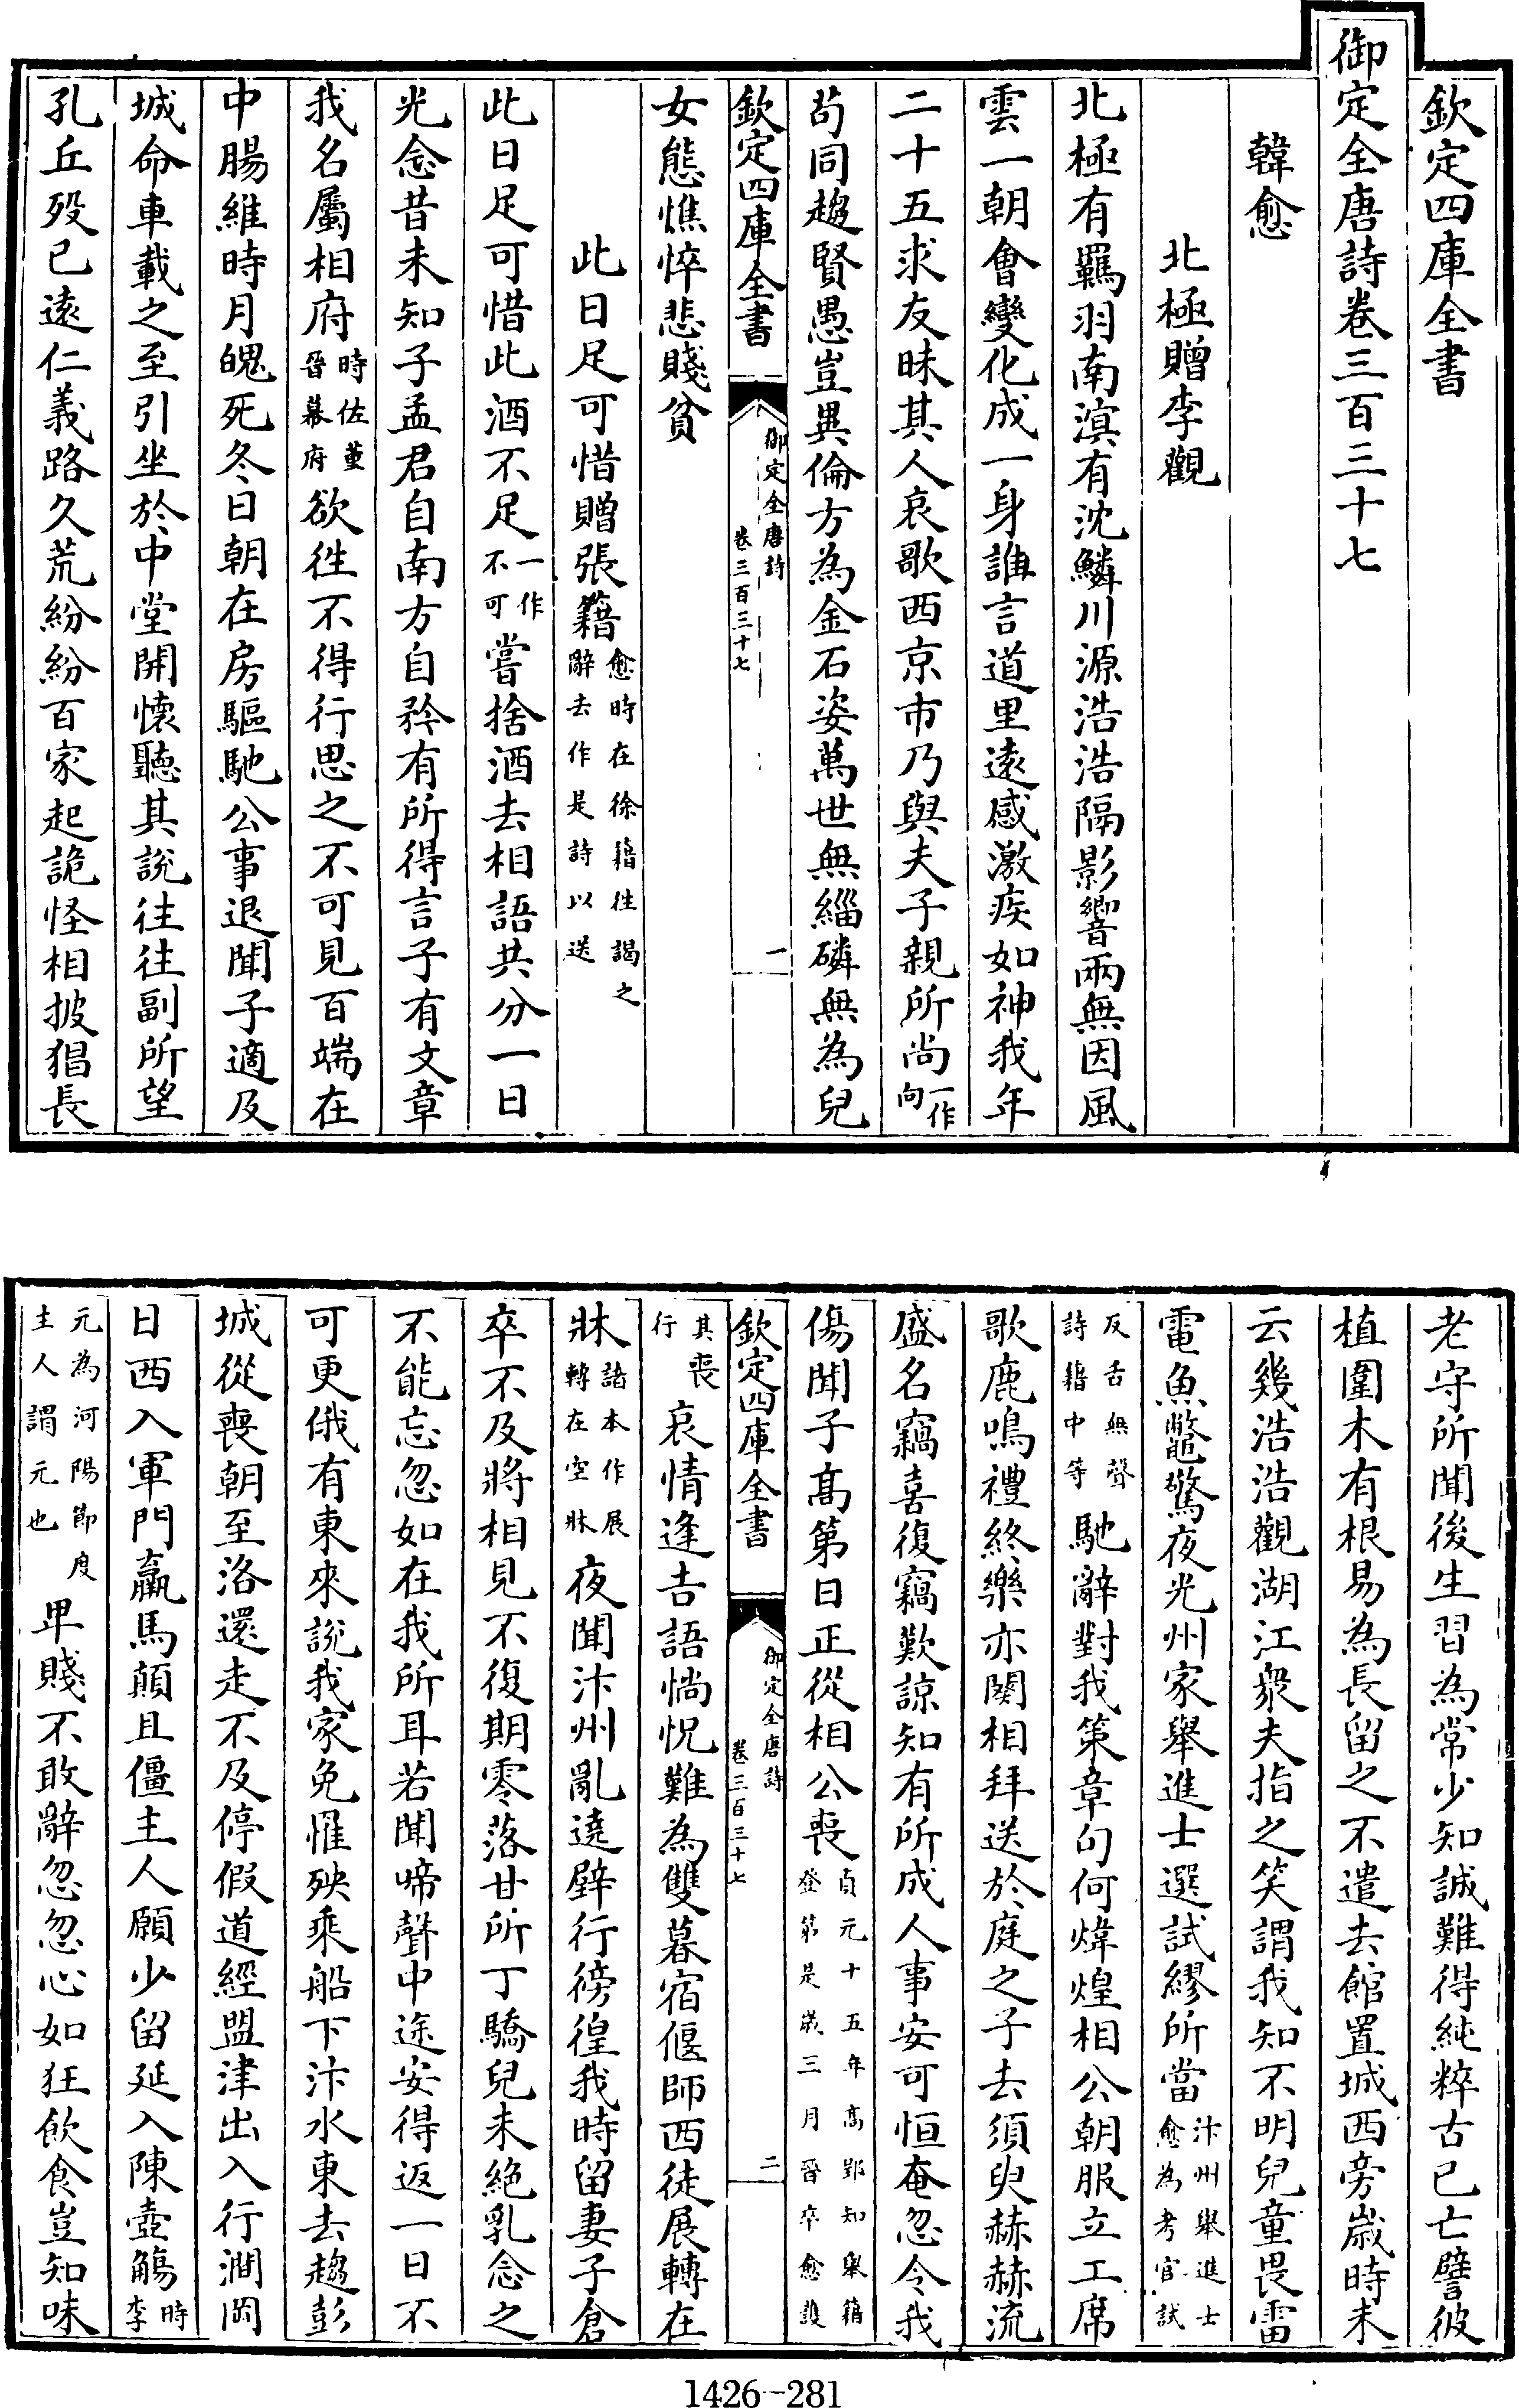 欽定四庫全書
御定全唐詩卷三百三十七
韓愈
北極贈李觀
北極有羈羽南溟有沈鱗川源浩浩隔影響兩無因風
雲一朝會變化成一身誰言道里遠感激疾如神我年
二十五求友昧其人哀歌西京市乃與夫子親所尚一作向
苟同趨賢愚豈異倫方為金石姿萬世無緇磷無為兒
欽定四庫全書 御定全唐詩卷三百三十七 一
女態憔悴悲賤貧
此日足可惜贈張籍愈時在徐籍往謁之辭去作是詩以送
此日足可惜此酒不足一作不可嘗捨酒去相語共分一日
光念昔未知子孟君自南方自矜有所得言子有文章
我名屬相府時佐董晉幕府欲往不得行思之不可見百端在
中腸維時月魄死冬日朝在房驅馳公事退聞子適及
城命車載之至引坐於中堂開懷聽其說往往副所望
孔丘歿已遠仁義路久荒紛紛百家起詭怪相披猖長
老守所聞後生習為常少知誠難得純粹古已亡譬彼
植園木有根易為長留之不遣去館置城西旁歲時未
云幾浩浩觀湖江衆夫指之笑謂我知不明兒童畏雷
電魚鼈驚夜光州家舉進士選試繆所當汴州舉進士愈為考官試
反舌無聲詩籍中等馳辭對我策章句何煒煌相公朝服立工席
歌鹿鳴禮終樂亦闋相拜送於庭之子去須臾赫赫流
盛名竊喜復竊歎諒知有所成人事安可恒奄忽令我
傷聞子高第日正從相公喪貞元十五年高郢知舉籍登第是歲三月晉卒愈護
欽定四庫全書 御定全唐詩卷三百三十七 二
其喪行哀情逢吉語惝怳難為雙暮宿偃師西徒展轉在
牀諸本作展轉在空牀夜聞汴州亂遶壁行徬徨我時留妻子倉
卒不及將相見不復期零落甘所丁驕兒未絕乳念之
不能忘忽如在我所耳若聞啼聲中途安得返一日不
可更俄有東來說我家免罹殃乘船下汴水東去趨彭
城從喪朝至洛還走不及停假道經盟津出入行澗岡
日西入軍門羸馬顛且僵主人願少留延入陳壺觴時李
元為河陽節度主人謂元也卑賤不敢辭忽忽心如狂飲食豈知味
1426-281